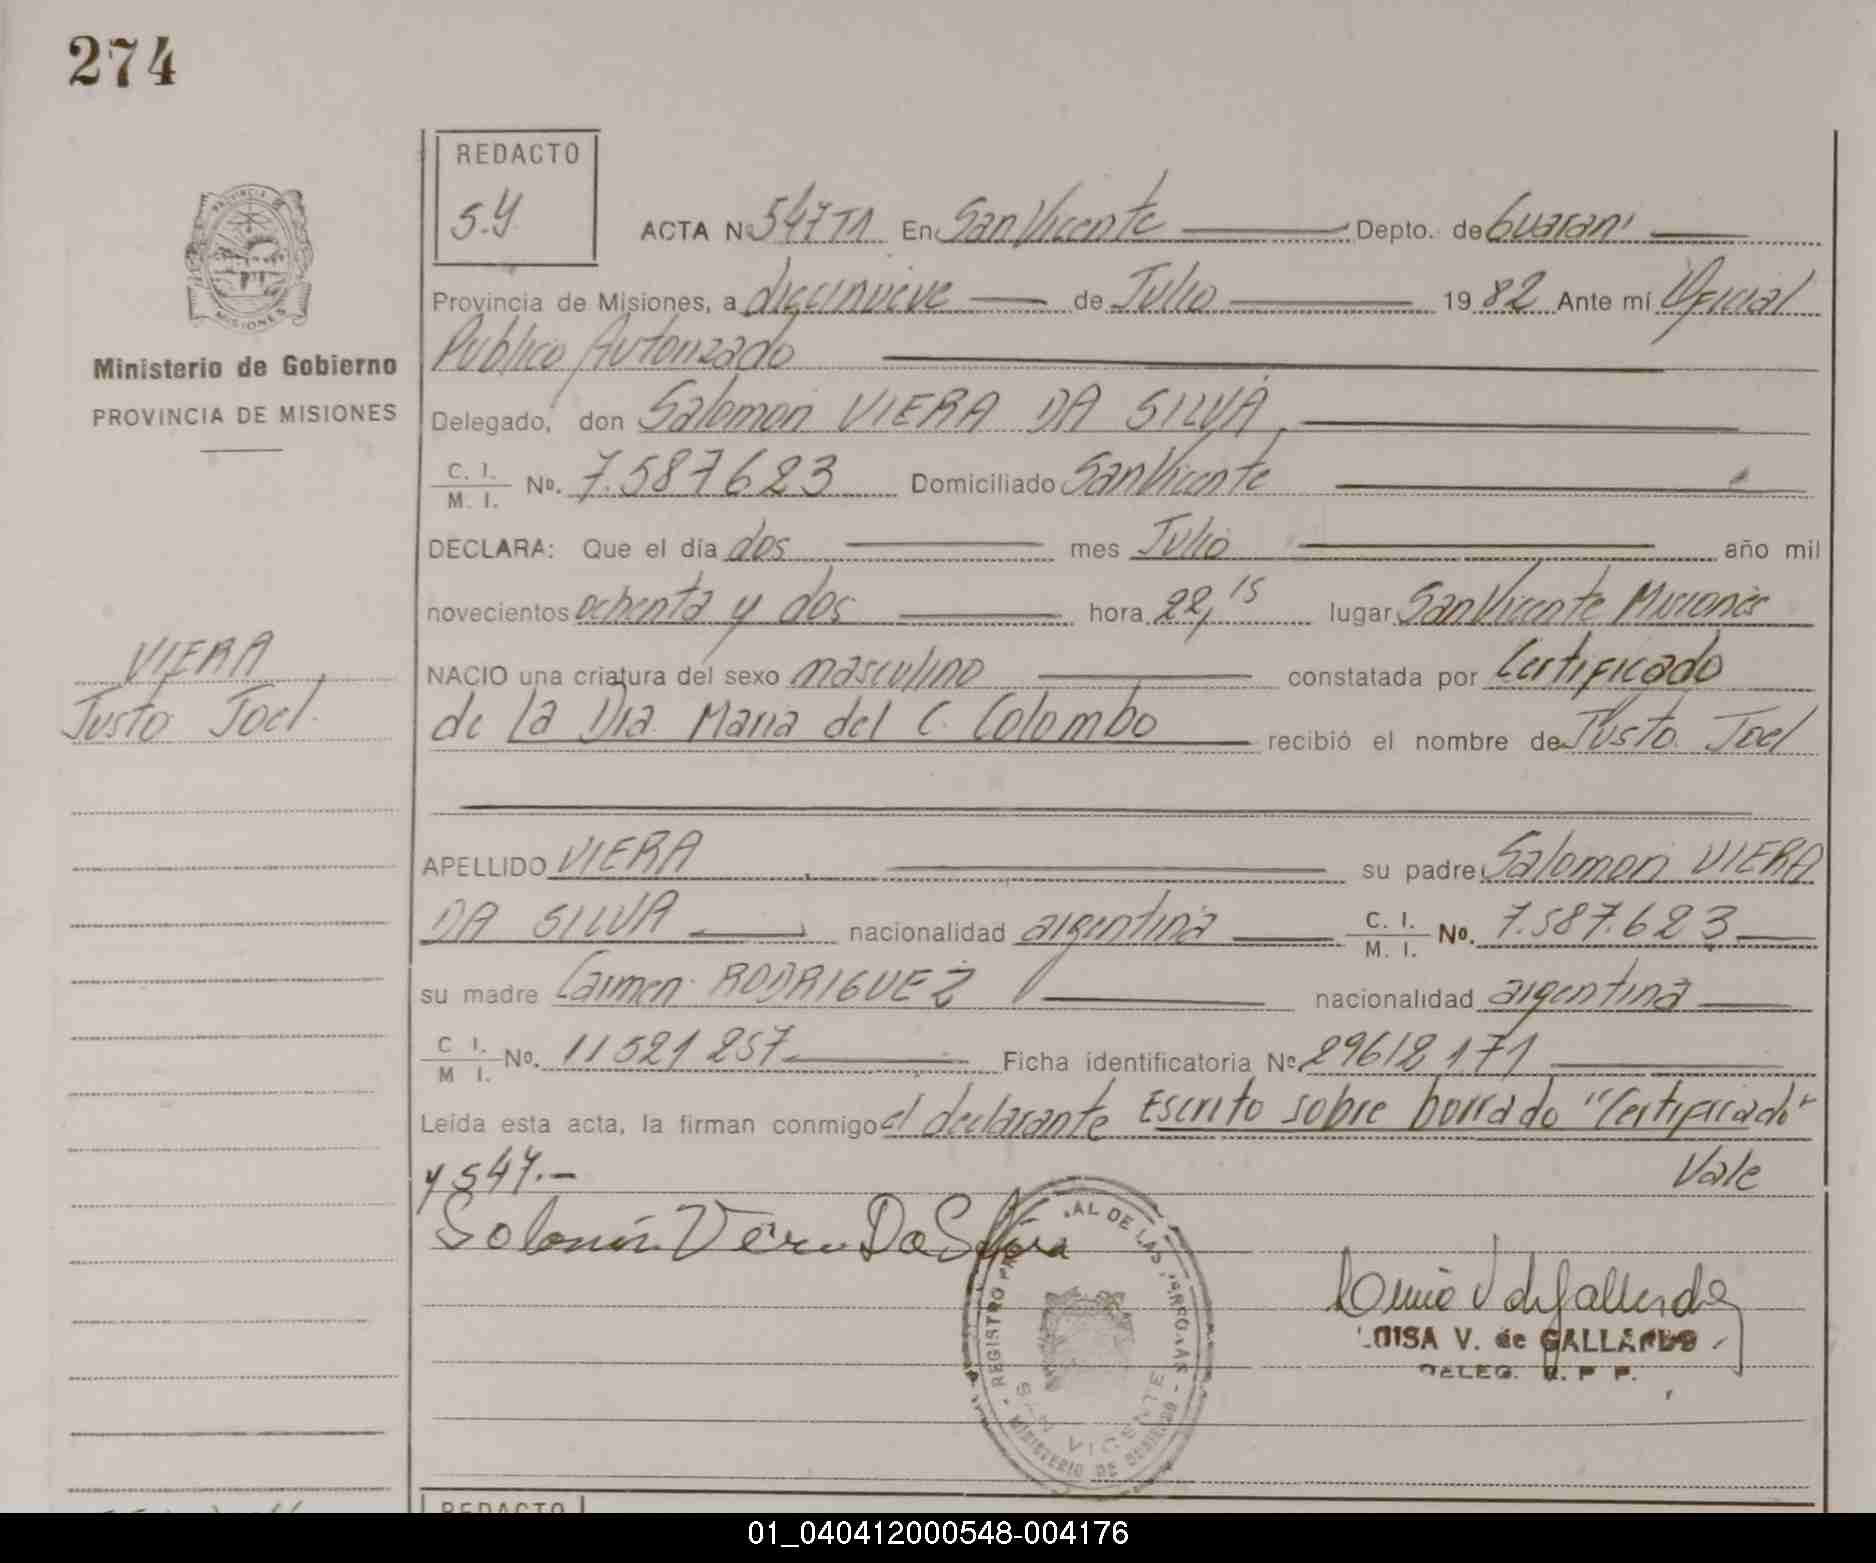 274
REDACTO
S.Y.
PROVINCIA DE
MISIONES
Ministerio de Gobierno
PROVINCIA DE MISIONES
ACTA N 547 T1 En San Vicente Depto. de Guarani
Provincia de Misiones, a diecinueve de Julio 1982 Ante mí Oficial
Publico Autorizado
Delegado, don Salomon VIERA DA SILVA
C. I. / M. I. No. 7.587623 Domiciliado San Vicente
DECLARA: Que el día dos mes Julio año mil
novecientos ochenta y dos hora 22,15 lugar San Vicente Misiones
VIERA
Justo Joel.
NACIO una criatura del sexo masculino constatada por Certificado
de la Dra. Maria del C. Colombo recibió el nombre de Justo Joel
APELLIDO VIERA su padre Salomon VIERA
DA SILVA nacionalidad argentina C. I. / M. I. No. 7.587.623
su madre Carmen RODRIGUEZ nacionalidad argentina
C I. / M I. No. 11521257 Ficha identificatoria No 29612171
Leída esta acta, la firman conmigo el declarante Escrito sobre borrado "Certificado"
y 547.- Vale
AL DE LAS PERSONAS - REGISTRO
SAN VICENTE
MINISTERIO DE GOBIERNO
LUISA V. de GALLARDO
DELEG. R. P. P.
REDACTO
01_040412000548-004176